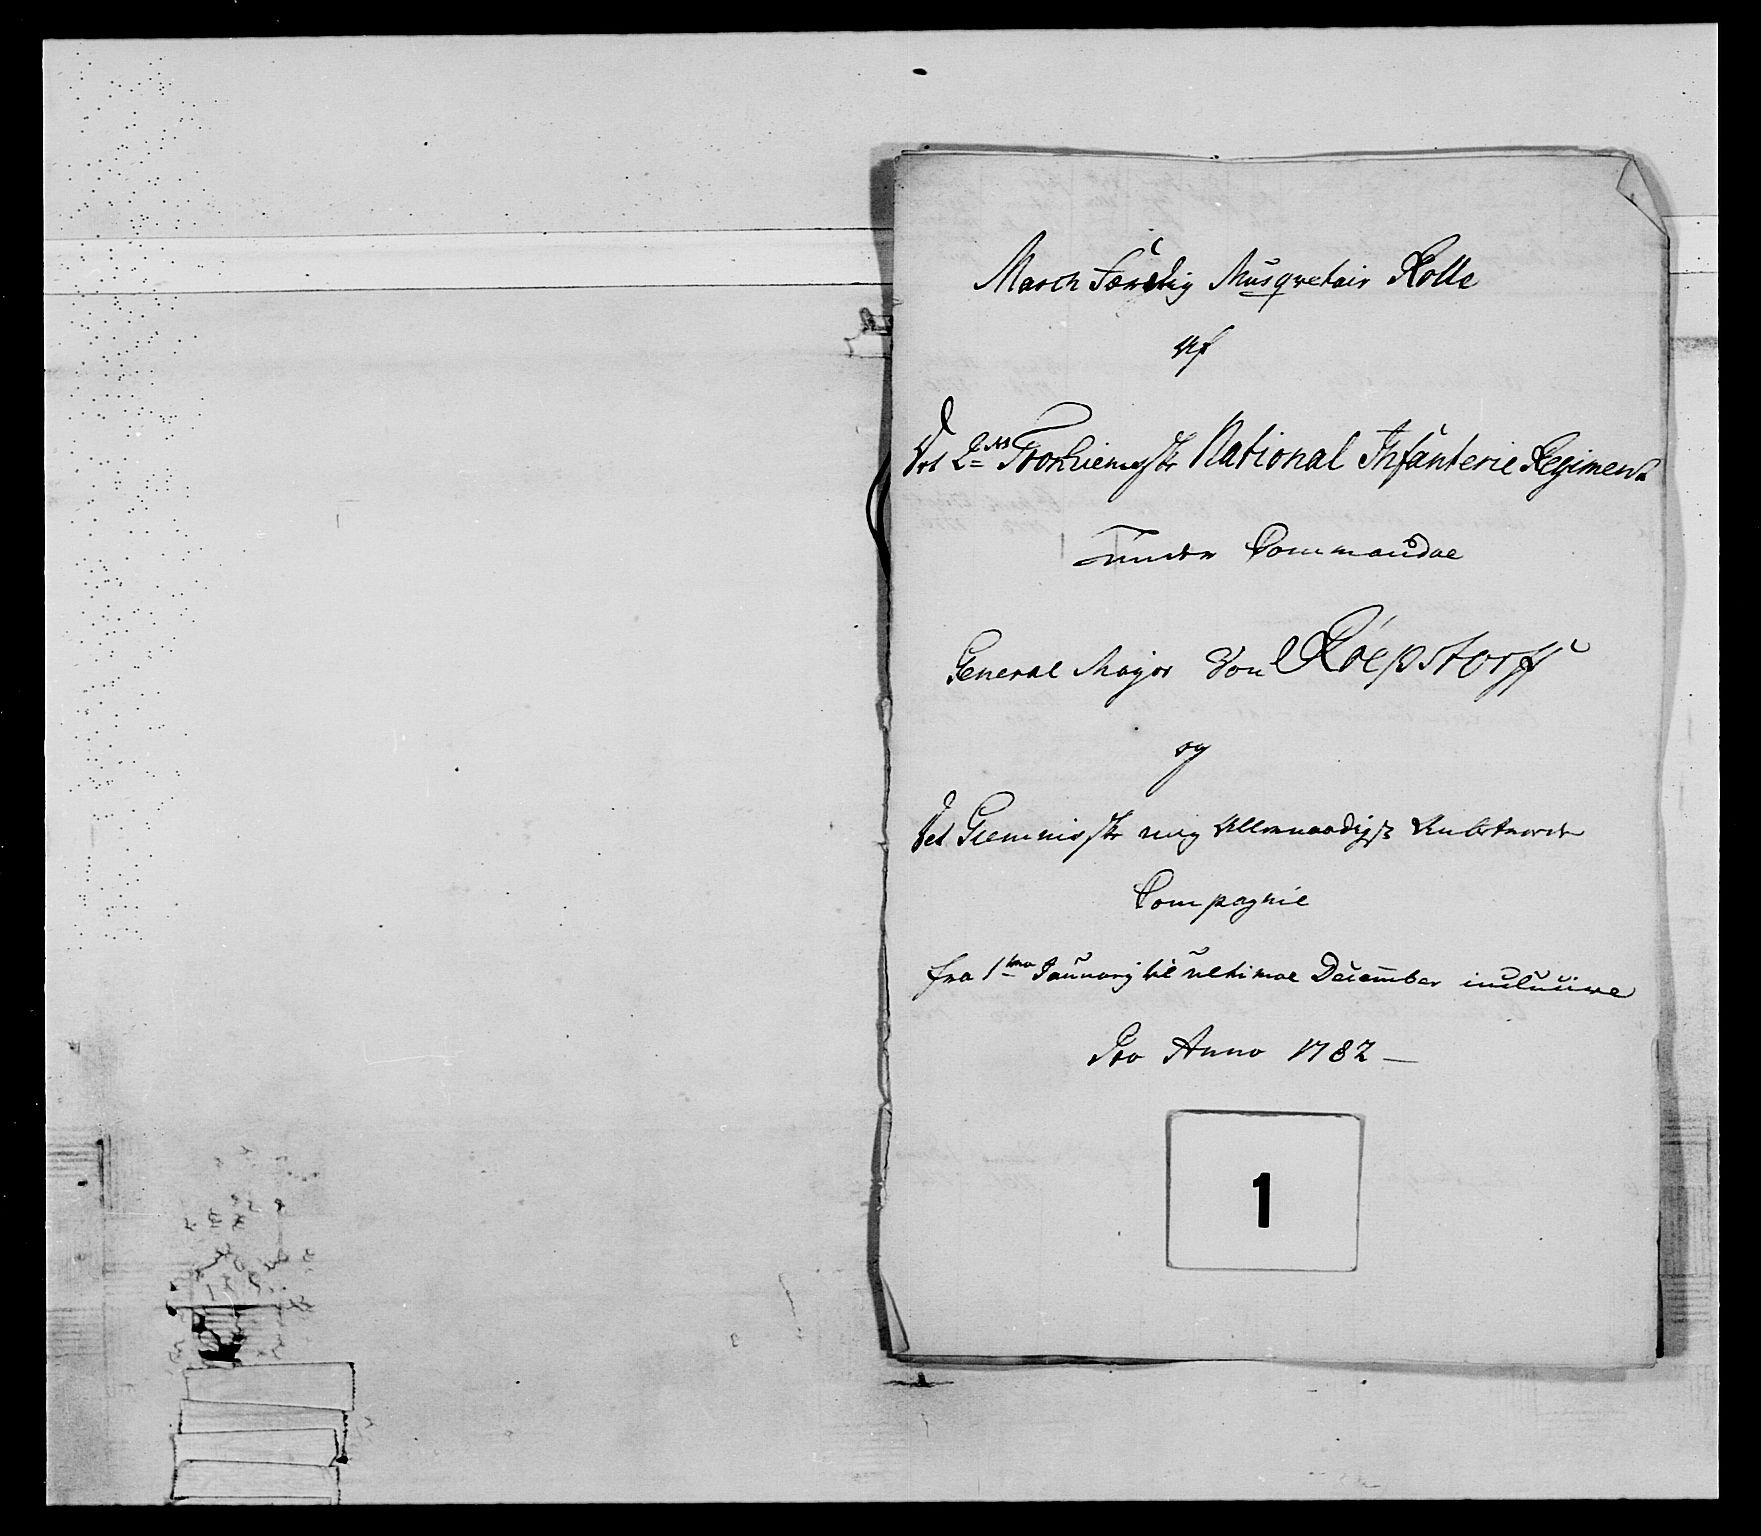 March Færdig Musqvetair Rolle
Af
Det 2det Tronhiemske National Infanterie Regiment
under Commandoe
General Major Von Röepstorff
og
Det Giemnisske mig Allernaadigst Anbetroede
Compagnie
fra 1mo Januarij til ultimoe December inclusive
Pro Anno 1782
1